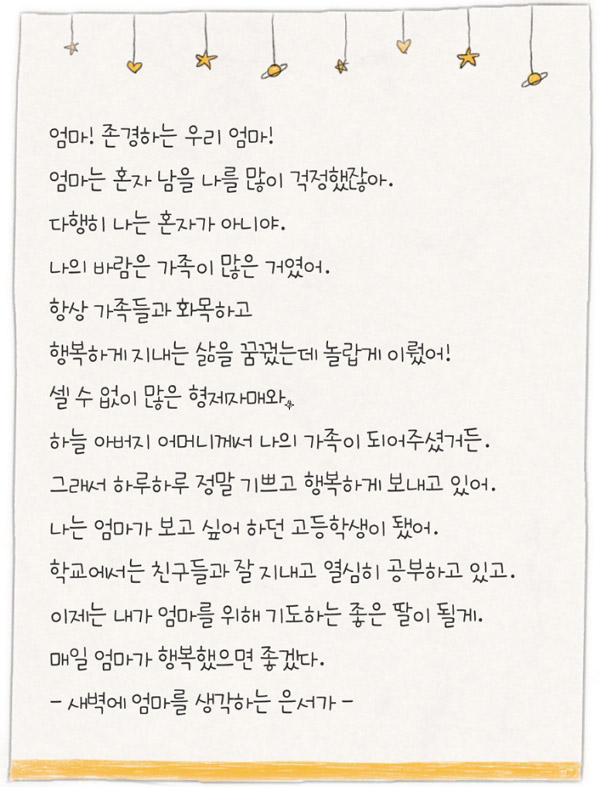 엄마! 존경하는 우리 엄마!
엄마는 혼자 남을 나를 많이 걱정했잖아.
다행히 나는 혼자가 아니야.
나의 바람은 가족이 많은 거였어.
항상 가족들과 화목하고
행복하게 지내는 삶을 꿈꿨는데 놀랍게 이뤘어!
셀 수 없이 많은 형제자매와,
하늘 아버지 어머니께서 나의 가족이 되어주셨거든.
그래서 하루하루 정말 기쁘고 행복하게 보내고 있어.
나는 엄마가 보고 싶어 하던 고등학생이 됐어.
학교에서는 친구들과 잘 지내고 열심히 공부하고 있고.
이제는 내가 엄마를 위해 기도하는 좋은 딸이 될게.
매일 엄마가 행복했으면 좋겠다.
- 새벽에 엄마를 생각하는 은서가 -